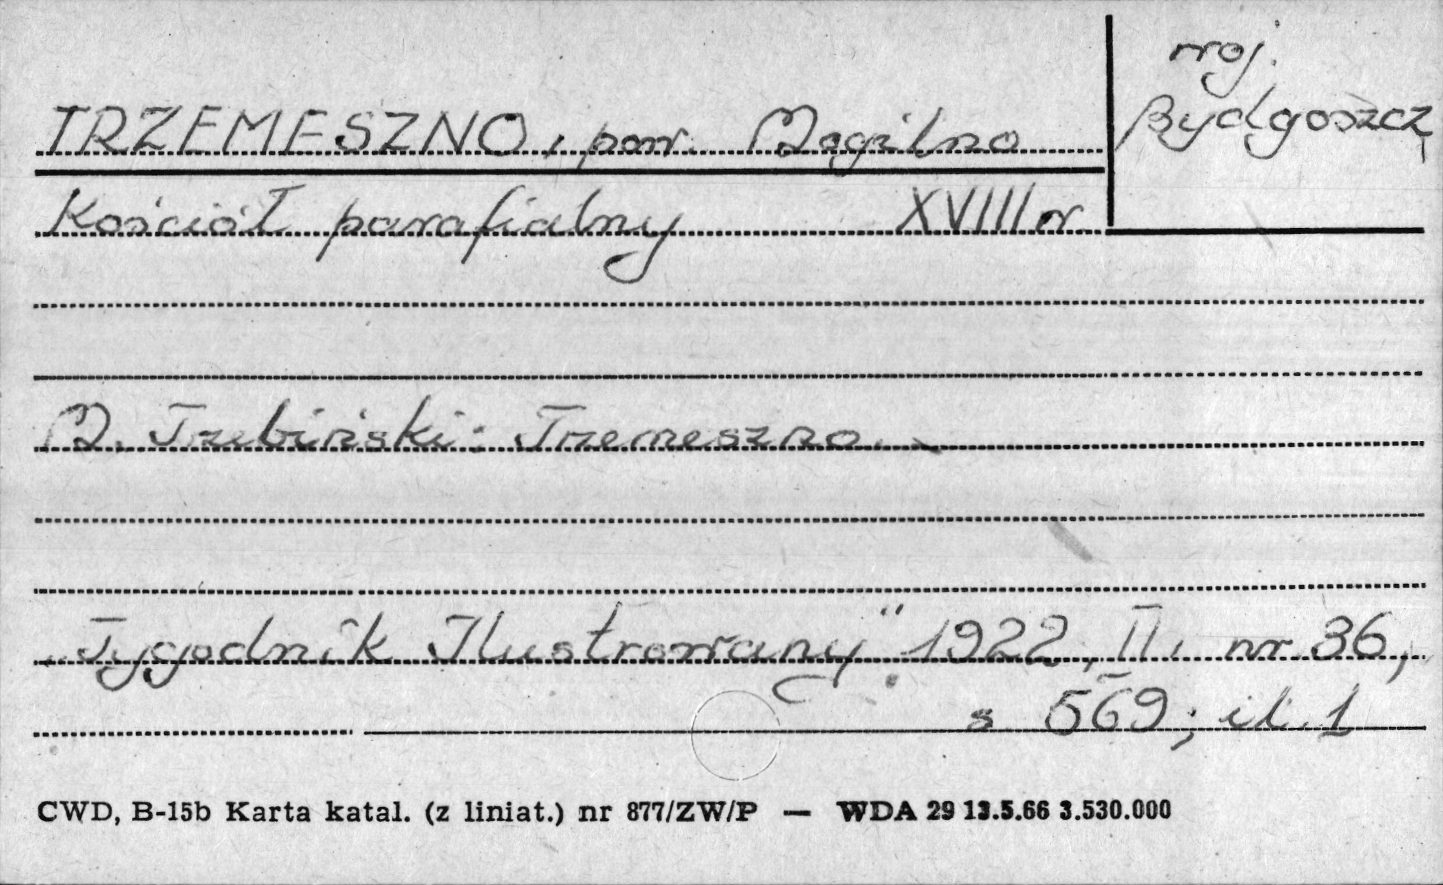 woj.
Bydgoszcz
TRZEMESZNO, pow. Mogilno
Kościół parafialny XVIII w.
M. Trzebiński: Trzemeszno.
„Tygodnik Ilustrowany" 1922, II, nr. 36,
s 569; il. 1
CWD, B-15b Karta katal. (z liniat.) nr 877/ZW/P — WDA 29 13.5.66 3.530.000